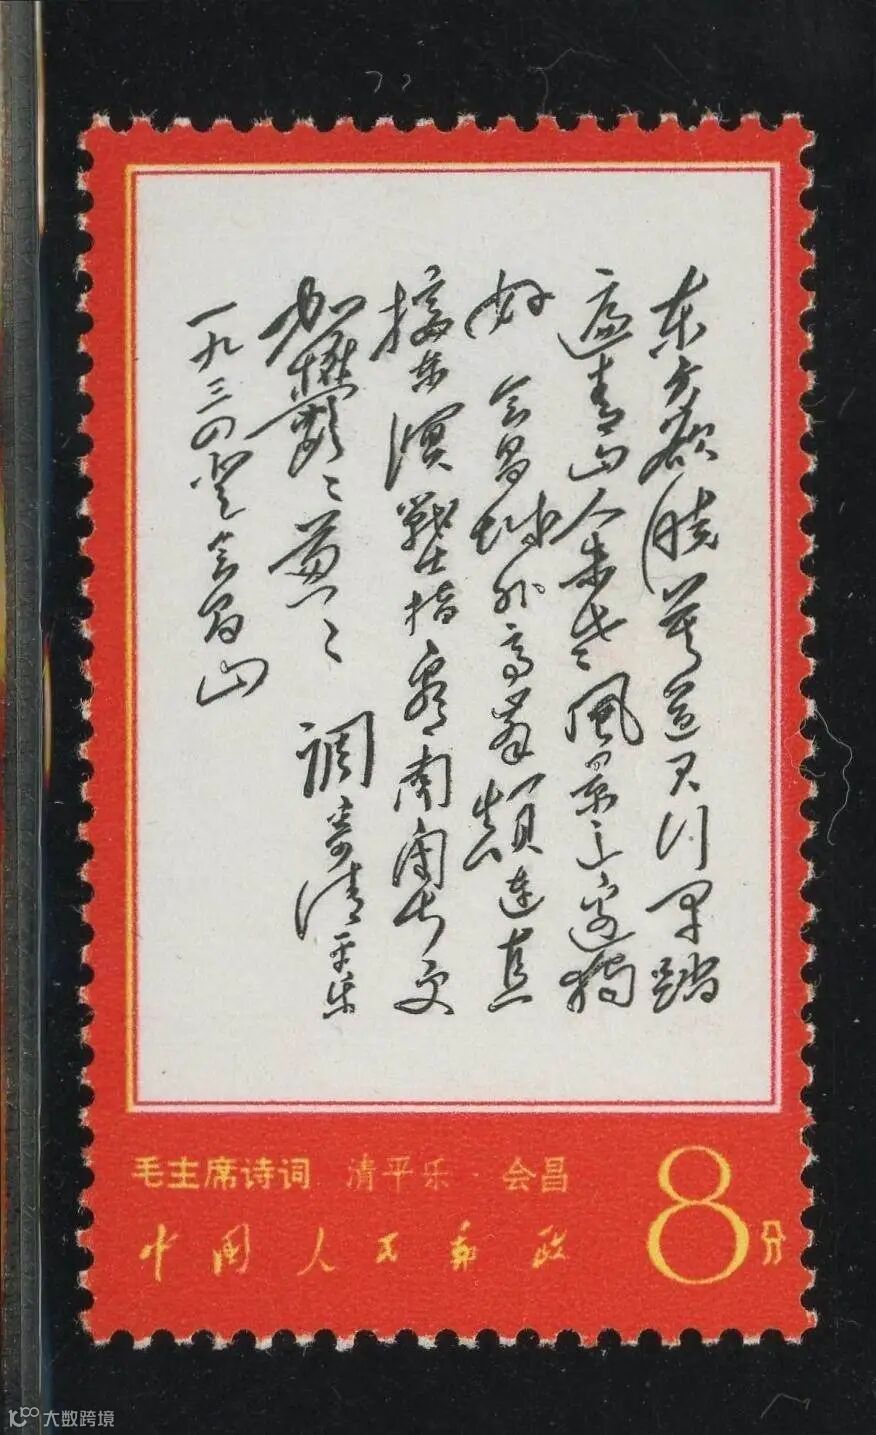 东方欲晓莫道君行早踏
遍青山人未老風景这邊獨
好 会昌城外高峯颠连直
接东溟戰士指看南粤更
加鬱〻葱〻 调寄清平乐
一九三四登会昌山
毛主席诗词 清平乐·会昌
中国人民邮政
8分
大数跨境